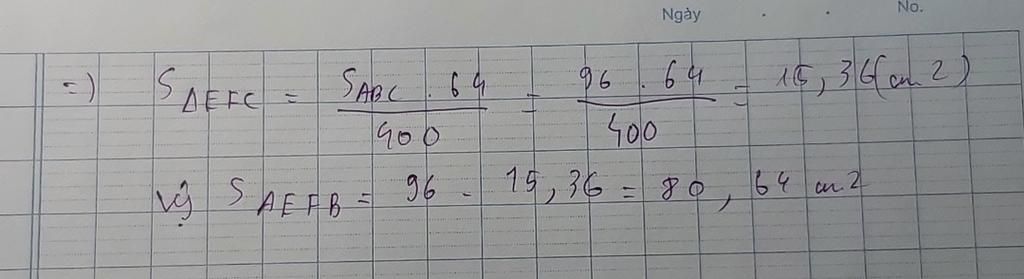 Ngày . . No.
=) SΔEFC = SABC . 64 / 400 = 96 . 64 / 400 = 15,36(cm2)
Vậy SAEFB = 96 - 15,36 = 80,64 cm2